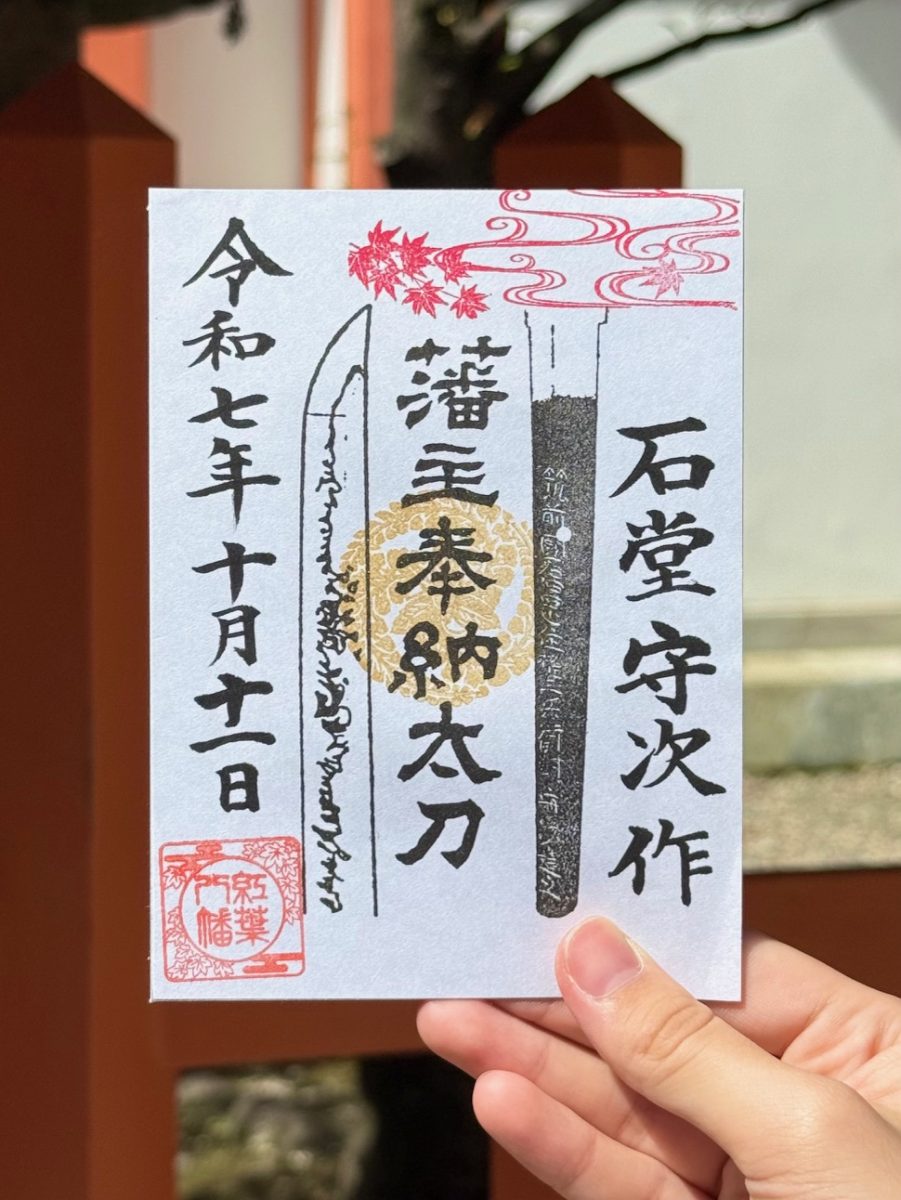 石堂守次作
筑前國
藩主奉納太刀
令和七年十月十一日
紅葉
八幡